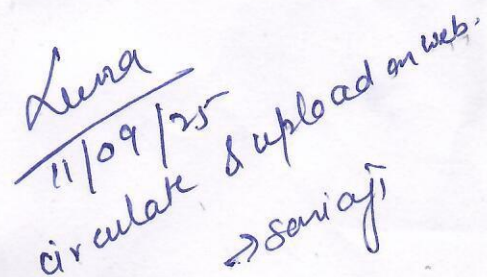 11/09/25
circulate & upload on web.
→ Soniaji